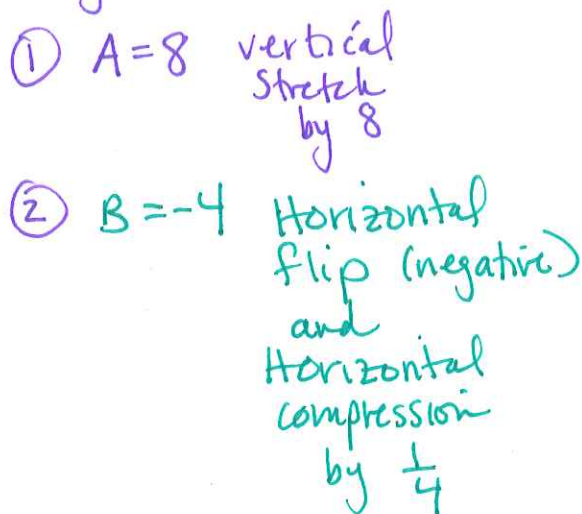 ① A=8 vertical
stretch
by 8
② B=-4 Horizontal
flip (negative)
and
Horizontal
compression
by 1/4